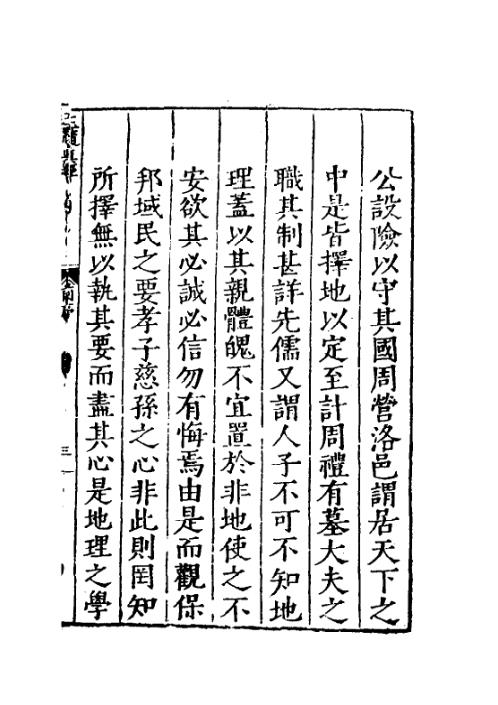 公設險以守其國周營洛邑謂居天下之
中是皆擇地以定至計周禮有墓大夫之
職其制甚詳先儒又謂人子不可不知地
理蓋以其親體魄不宜置於非地使之不
安欲其必誠必信勿有悔焉由是而觀保
邦域民之要孝子慈孫之心非此則罔知
所擇無以執其要而盡其心是地理之學
三